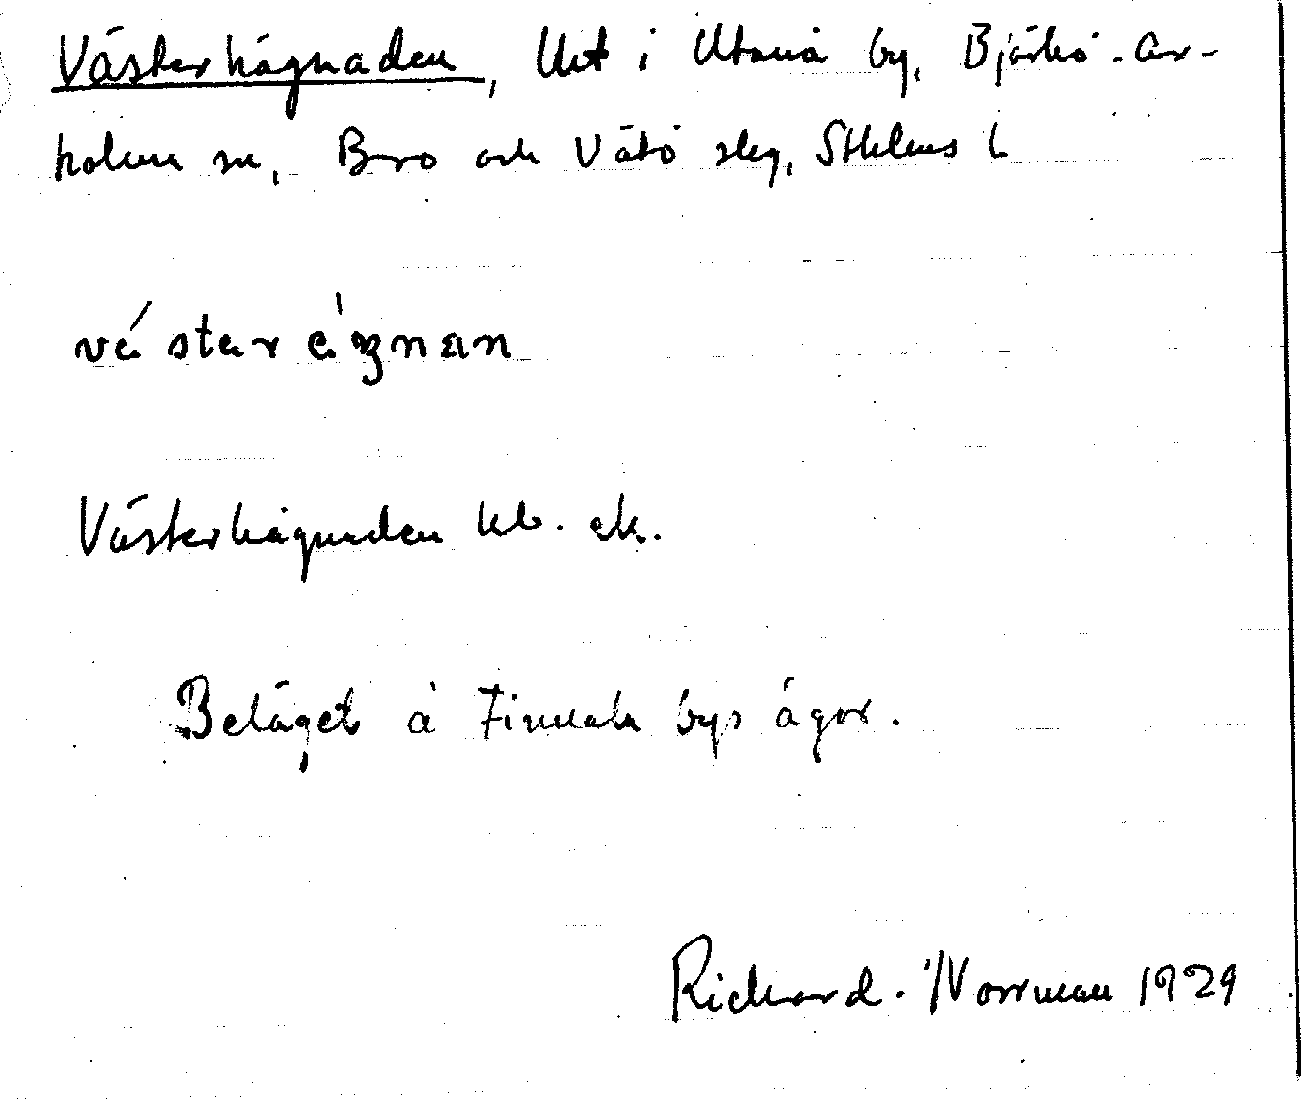 Västerhägnaden, Urt i Utanå by, Björkö-Ar-
holma sn, Bro och Vätö slg, Sthlms l
vä́starä̀gnan
Västerhägnaden kb. ek.
Beläget å Finnala bys ägor.
Richard Norrman 1929